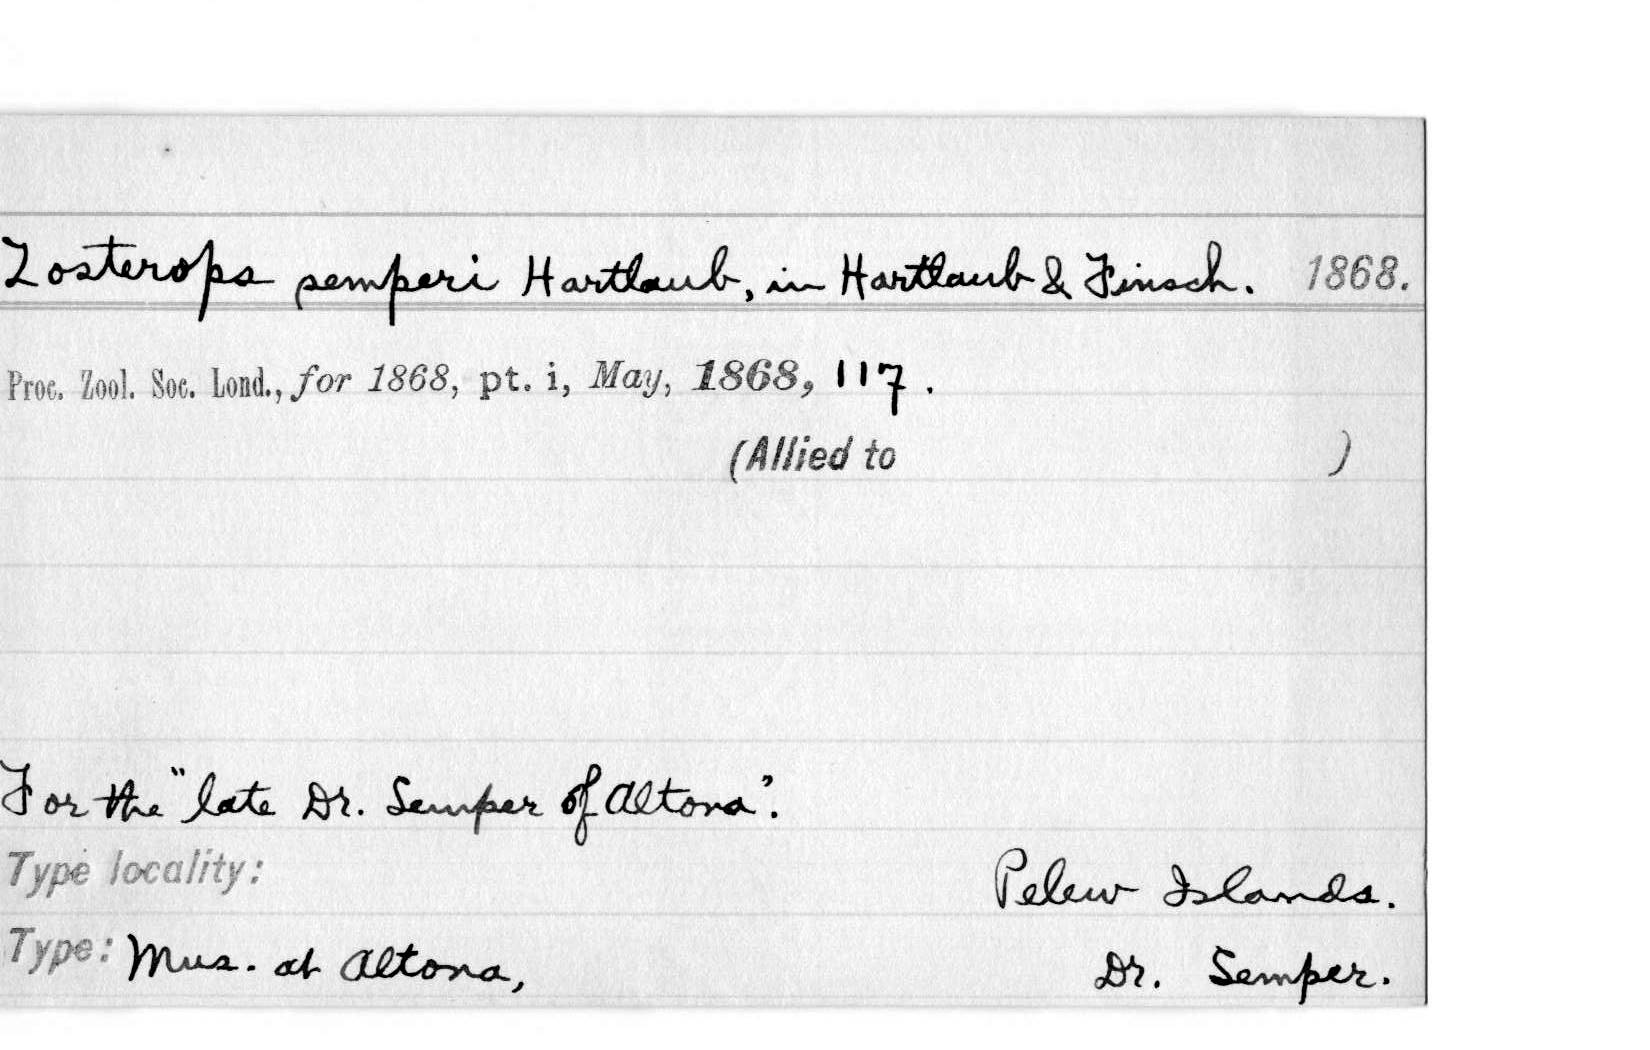 Zosterops semperi Hartlaub, in Hartlaub & Finsch. 1868.
Proc. Zool. Soc. Lond., for 1868, pt. i, May, 1868, 117.
(Allied to )
For the "late Dr. Semper of Altona".
Type locality: Pelew Islands.
Type: Mus. at Altona, Dr. Semper.